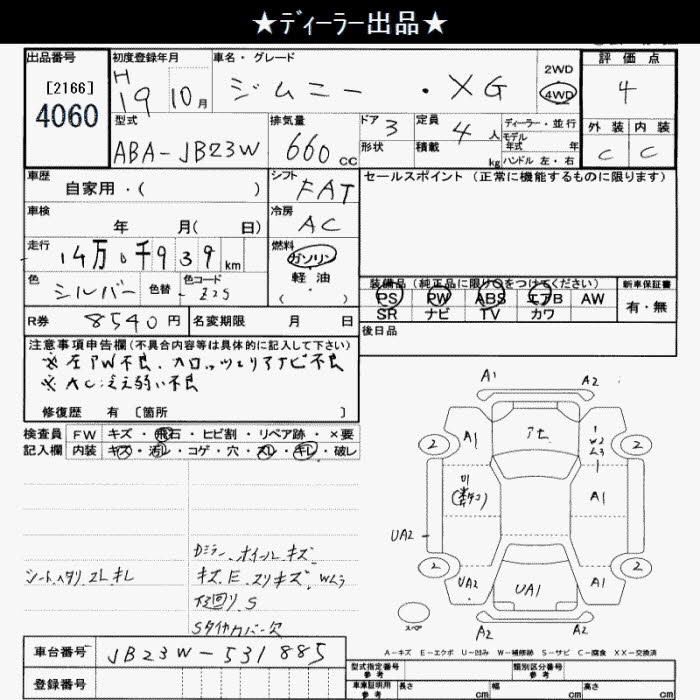 ★ディーラー出品★
出品番号
[2166]
4060
初度登録年月
H
19 10月
車名・グレード
ジムニー ・ XG
2WD
4WD
評価点
4
型式
ABA-JB23W
排気量
660 CC
ドア 3
形状
定員 4 人
積載 kg
ディーラー・並行
モデル
年式 年
ハンドル 左・右
外装 内装
C C
車歴
自家用・( )
シフト
FAT
セールスポイント (正常に機能するものに限ります)
車検
年 月( 日)
冷房
AC
走行
14万0千939 km
燃料
ガソリン
軽・油
( )
色
シルバー
色替
色コード
- Z2S
装備品 (純正品に限り○をつけてください)
PS PW ABS エアB AW
SR ナビ TV カワ
新車保証書
有・無
R券 8540 円
名変期限 月 日
後日品
注意事項申告欄(不具合内容等は具体的に記入して下さい)
※左PW不良、カロッツェリアナビ不良
※AC冷え弱い不良
修復歴 有 [箇所 ]
検査員
記入欄
FW キズ・飛石・ヒビ割・リペア跡・×要
内装 キズ・汚レ・コゲ・穴・スレ・キレ・破レ
Dミラー、ホイールキズ
シートヘタリ スレ キレ
キズ、E、スリキズ、Wムラ
下回り、S
Sタイヤカバー欠
A1 A2
2 A1 アセ 1 W2 ムラ 2
A1
UA2
2 UA2 UA1 A1 2
スペア
A2 A2
A-キズ E-エクボ U-凹み W-補修跡 S-サビ C-腐食 XX-交換済
車台番号
JB23W-531885
登録番号
型式指定番号
参考
類別区分番号
参考
車車証明用
参考
長さ cm
幅 cm
高さ cm